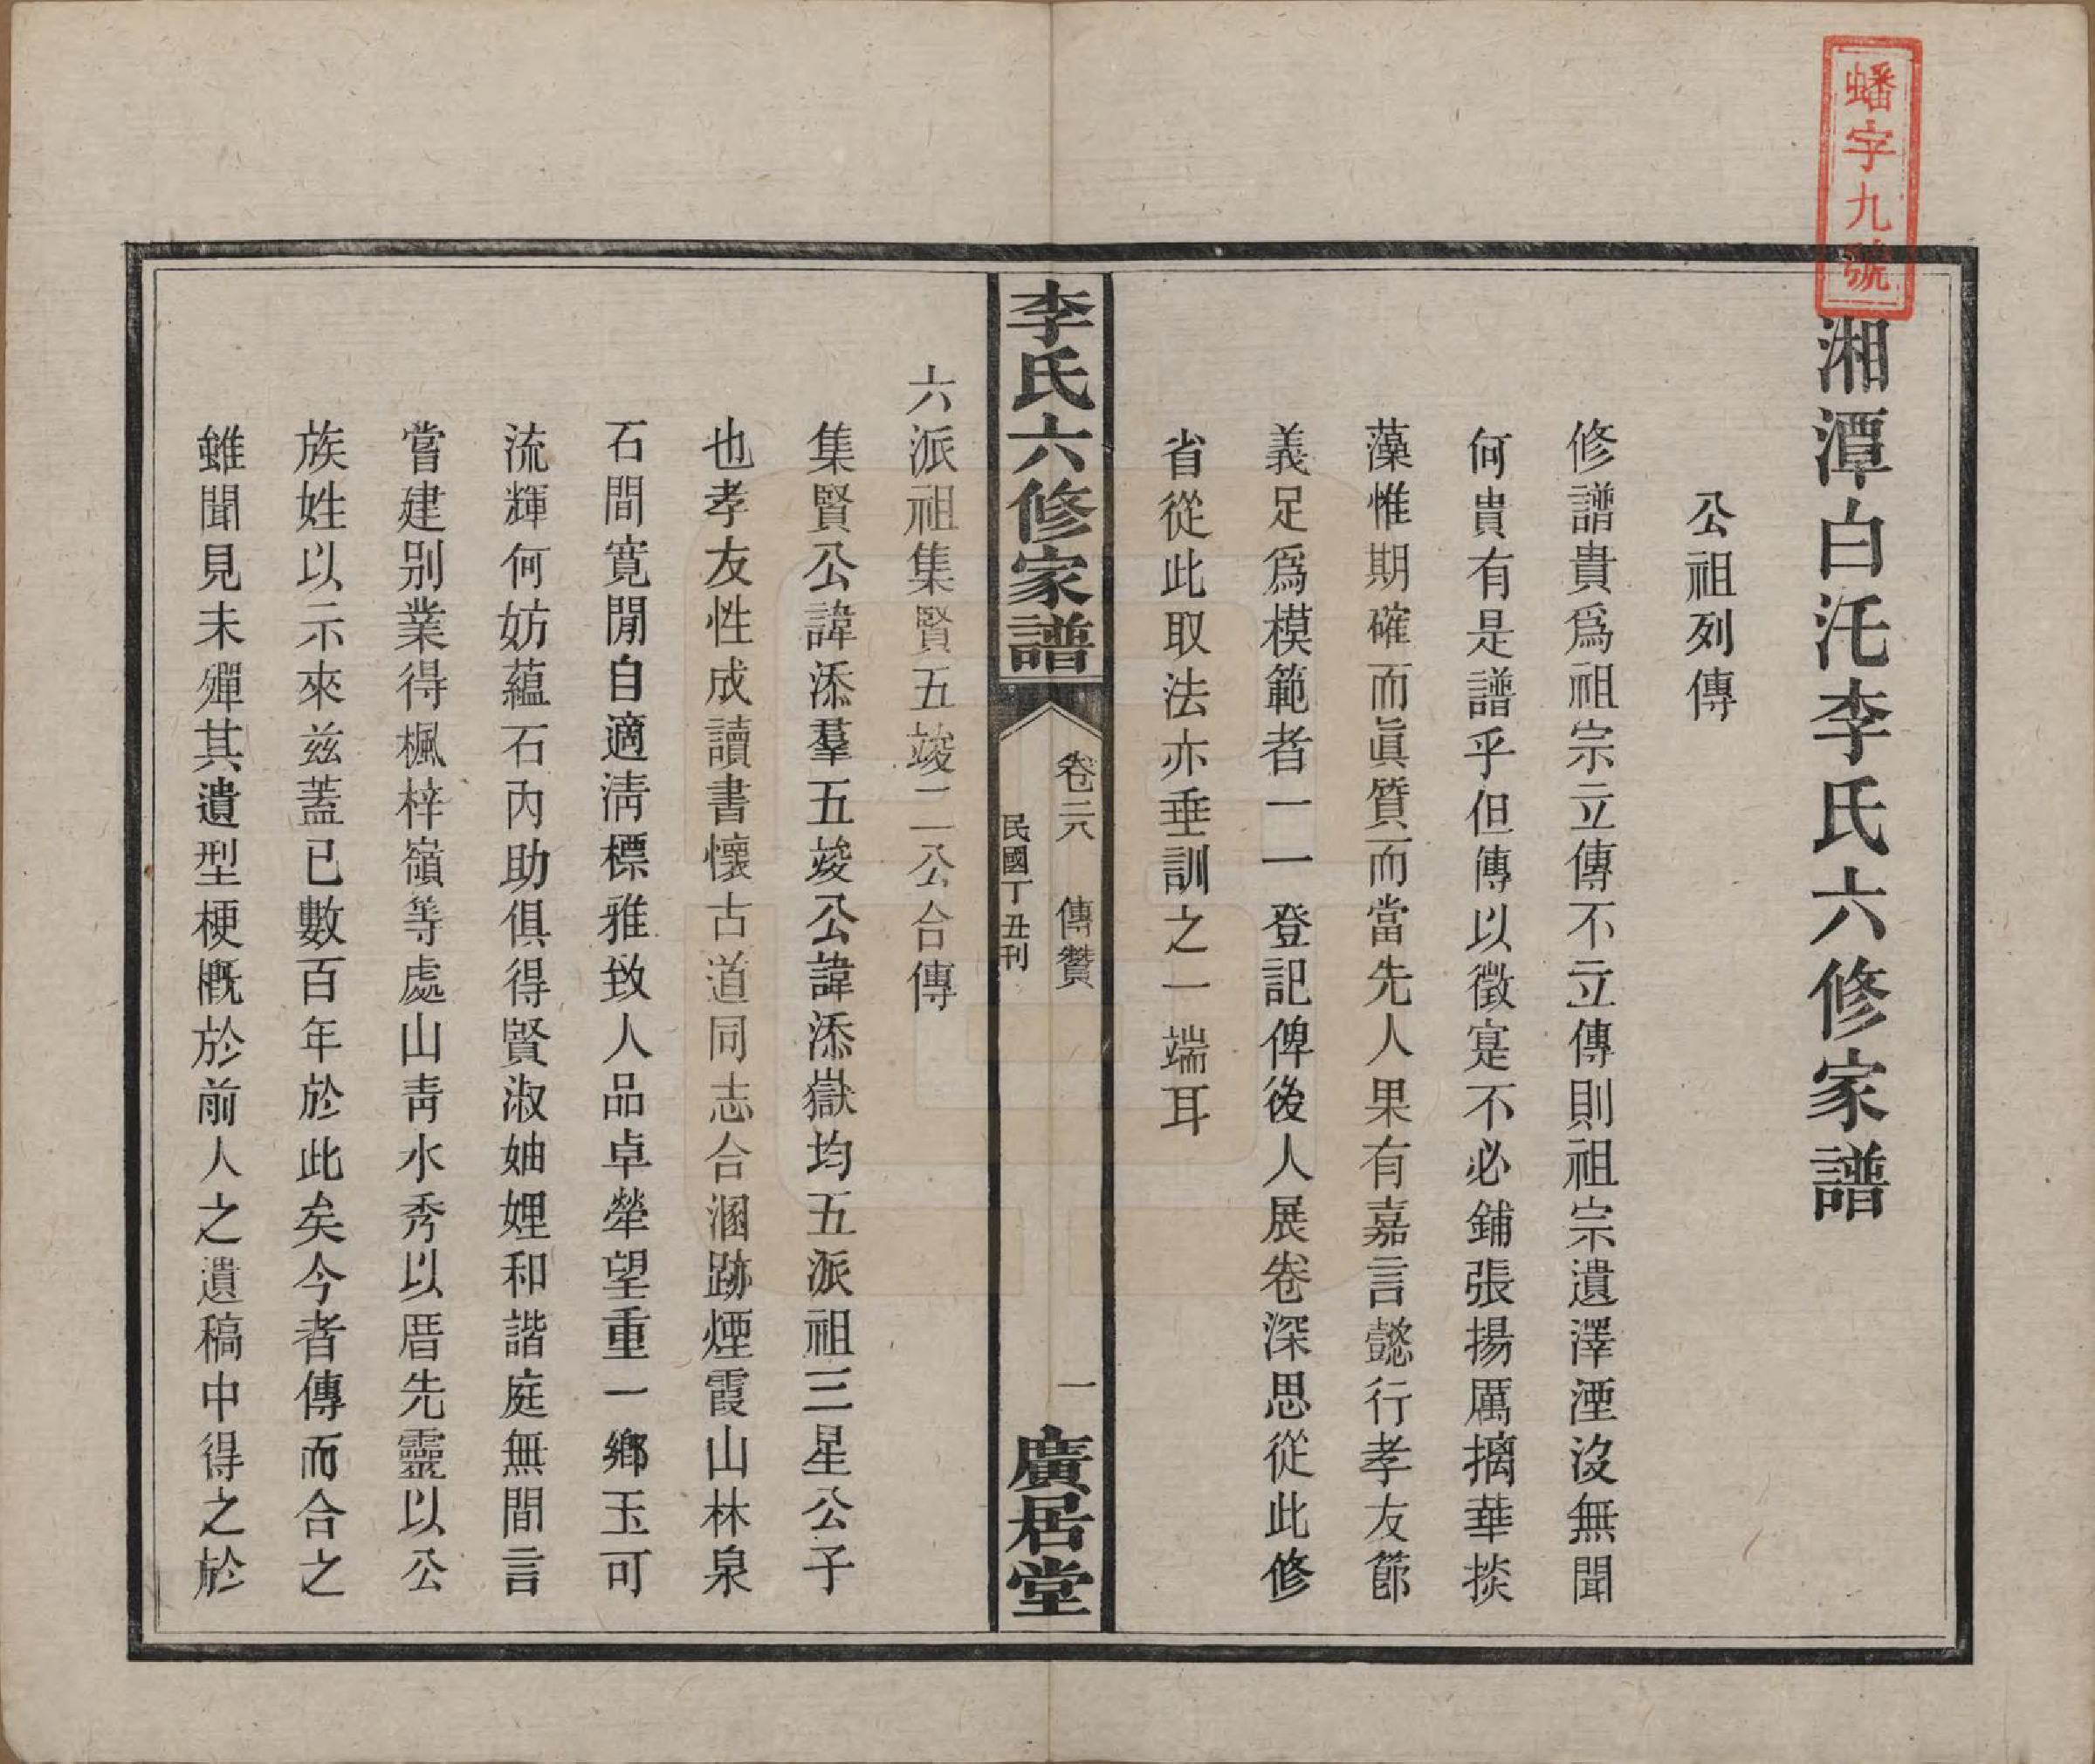 蟠字九號
湘潭白汑李氏六修家譜
公祖列傳
修譜貴爲祖宗立傳不立傳則祖宗遺澤湮沒無聞
何貴有是譜乎但傳以徵寔不必鋪張揚厲摛華掞
藻惟期確而眞質而當先人果有嘉言懿行孝友節
義足爲模範者一一登記俾後人展卷深思從此修
省從此取法亦垂訓之一端耳
李氏六修家譜
卷二八 傳贊
民國丁丑刊
一
廣居堂
六派祖集賢五竣二公合傳
集賢公諱添羣五竣公諱添嶽均五派祖三星公子
也孝友性成讀書懷古道同志合溷跡煙霞山林泉
石間寬閒自適淸標雅致人品卓犖望重一鄉玉可
流輝何妨蘊石內助俱得賢淑妯娌和諧庭無間言
嘗建别業得楓梓嶺等處山靑水秀以厝先靈以公
族姓以示來兹蓋已數百年於此矣今者傳而合之
雖聞見未殫其遺型梗槪於前人之遺稿中得之於